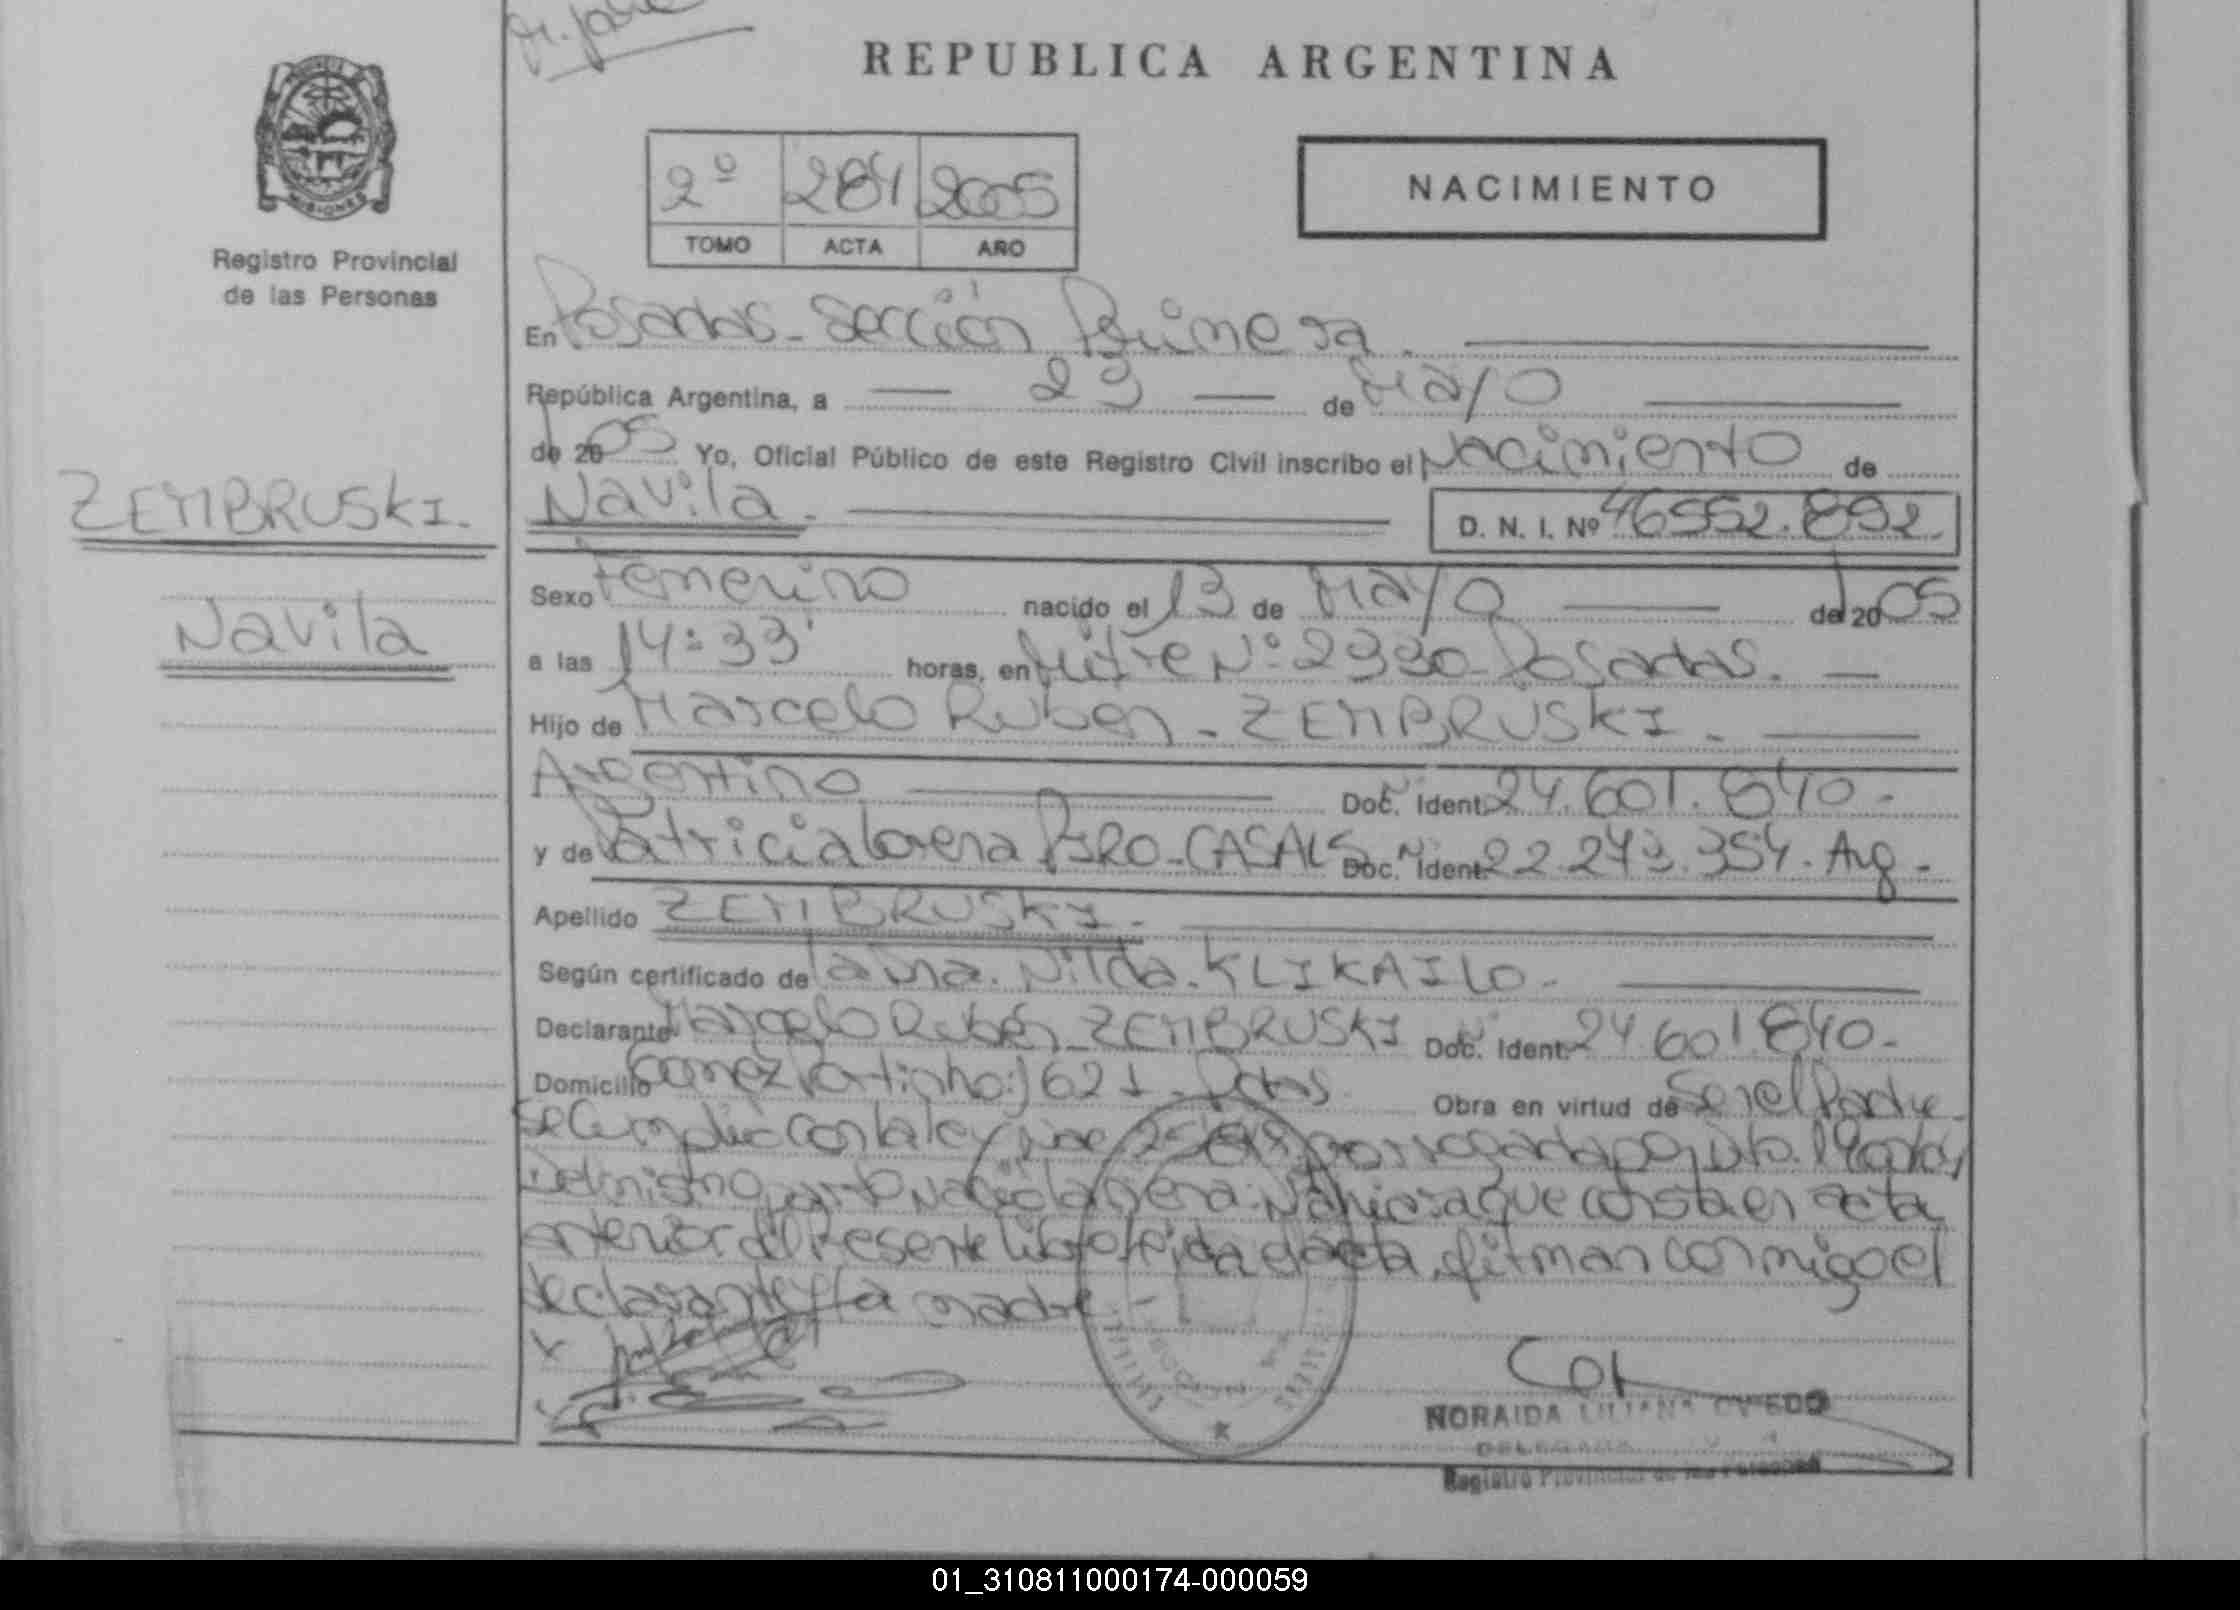 REPUBLICA ARGENTINA
MISIONES
Registro Provincial
de las Personas
2º 284 2005
TOMO ACTA AÑO
NACIMIENTO
En Posadas - Sección Primera.
República Argentina, a 23 de Mayo
de 2005 Yo, Oficial Público de este Registro Civil inscribo el Nacimiento de
ZEMBRUSKI.
Navila
Navila. D. N. I. Nº 46552.892
Sexo Femenino nacido el 13 de Mayo de 2005
a las 14:33' horas, en Mitre Nº 2330 Posadas.
Hijo de Marcelo Ruben - ZEMBRUSKI.
Argentino Doc. Ident 24.601.840-
y de Patricia Lorena PIRO-CASALS Doc. Ident 22.243.354. Arg-
Apellido ZEMBRUSKI.
Según certificado de la Dra. Nilda. KLIKAILO-
Declarante Marcelo Rubén ZEMBRUSKI Doc. Ident. 24.601.840-
Domicilio Gomez 1621. Pdas Obra en virtud de Ser el Padre-
Se Cumplió con la ley por Dto.
Del mismo parto Nació la que consta en acta
anterior del Presente libro leida el acta, firman conmigo el
declarante y la madre.-
NORAIDA LILIANA OVIEDO
DELEGADA
Registro Provincial de las Personas
01_310811000174-000059